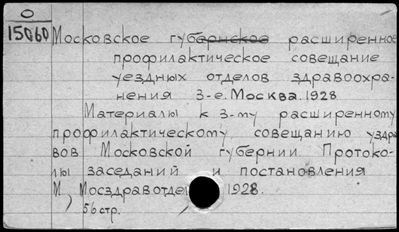 О
15060
Московское губернское расширенное
профилактическое совещание
уездных отделов здравоохра-
нения 3-е. Москва. 1928
Материалы к 3-му расширенному
профилактическому совещанию уздра
вов Московской губернии. Протоко-
лы заседаний и постановления
М., Мосздравотдел, 1928.
56 стр.